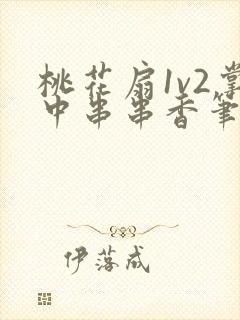 桃花扇1v2掌
中串串香笔
伊落成